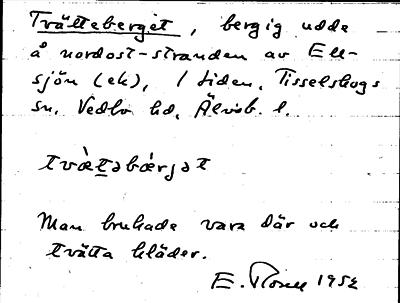 Tvätteberget, bergig udde
å nordost-stranden av Elle-
sjön (ek), / Liden, Tisselskogs
sn, Vedbo hd, Älvsb. l.
tvæ̀təbærjət
Man brukade vara där och
tvätta kläder.
E. Rosell 1952